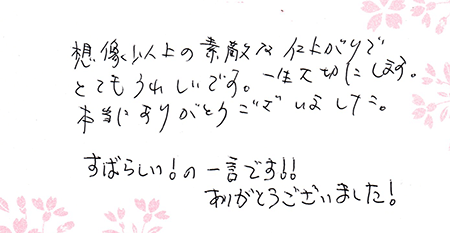 想像以上の素敵な仕上がりで
とてもうれしいです。一生大切にします。
本当にありがとうございました。
すばらしい!の一言です!!
ありがとうございました!